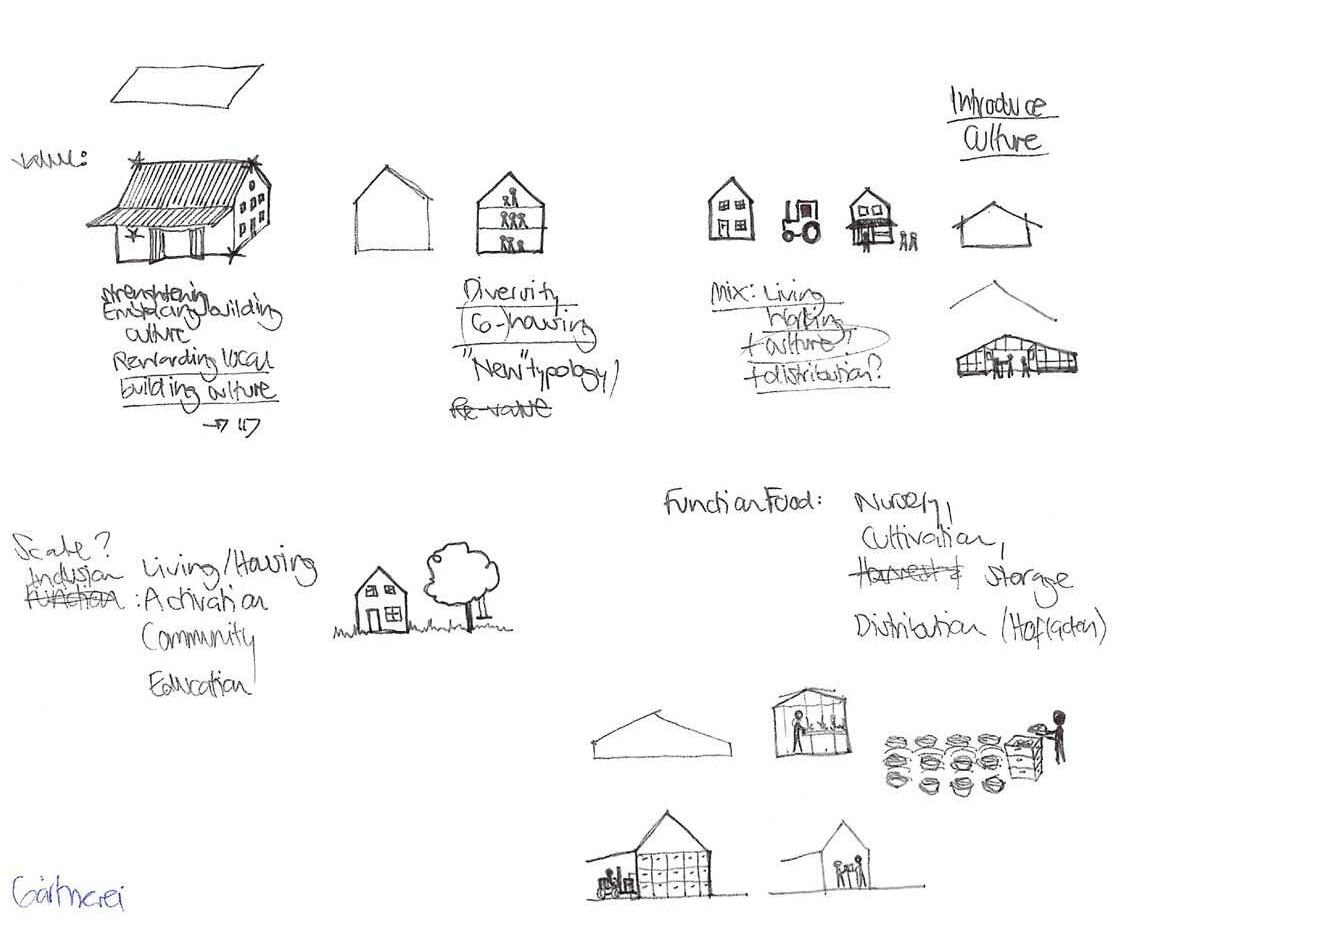 value:
Introduce
Culture
strenghtening
Embracing building
culture
Rewarding local
building culture
Diversity
(Co-)housing
"New" typology
Re-value
Mix: Living
Working
+ culture?
+ distribution?
Function Food: Nursery,
Cultivation,
Harvest & Storage
Distribution (Hofladen)
Scale?
Inclusion
Function: Living/Housing
Activation
Community
Education
Gärtnerei